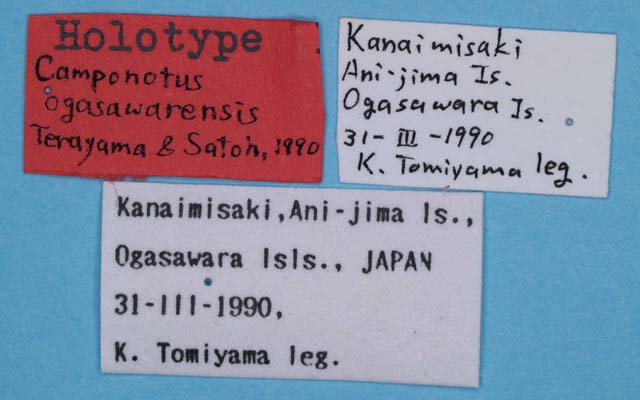 Holotype
Camponotus
ogasawarensis
Terayama & Satoh, 1990
Kanaimisaki
Ani-jima Is.
Ogasawara Is.
31-III-1990
K. Tomiyama leg.
Kanaimisaki,Ani-jima Is.,
Ogasawara Isls., JAPAN
31-III-1990,
K. Tomiyama leg.